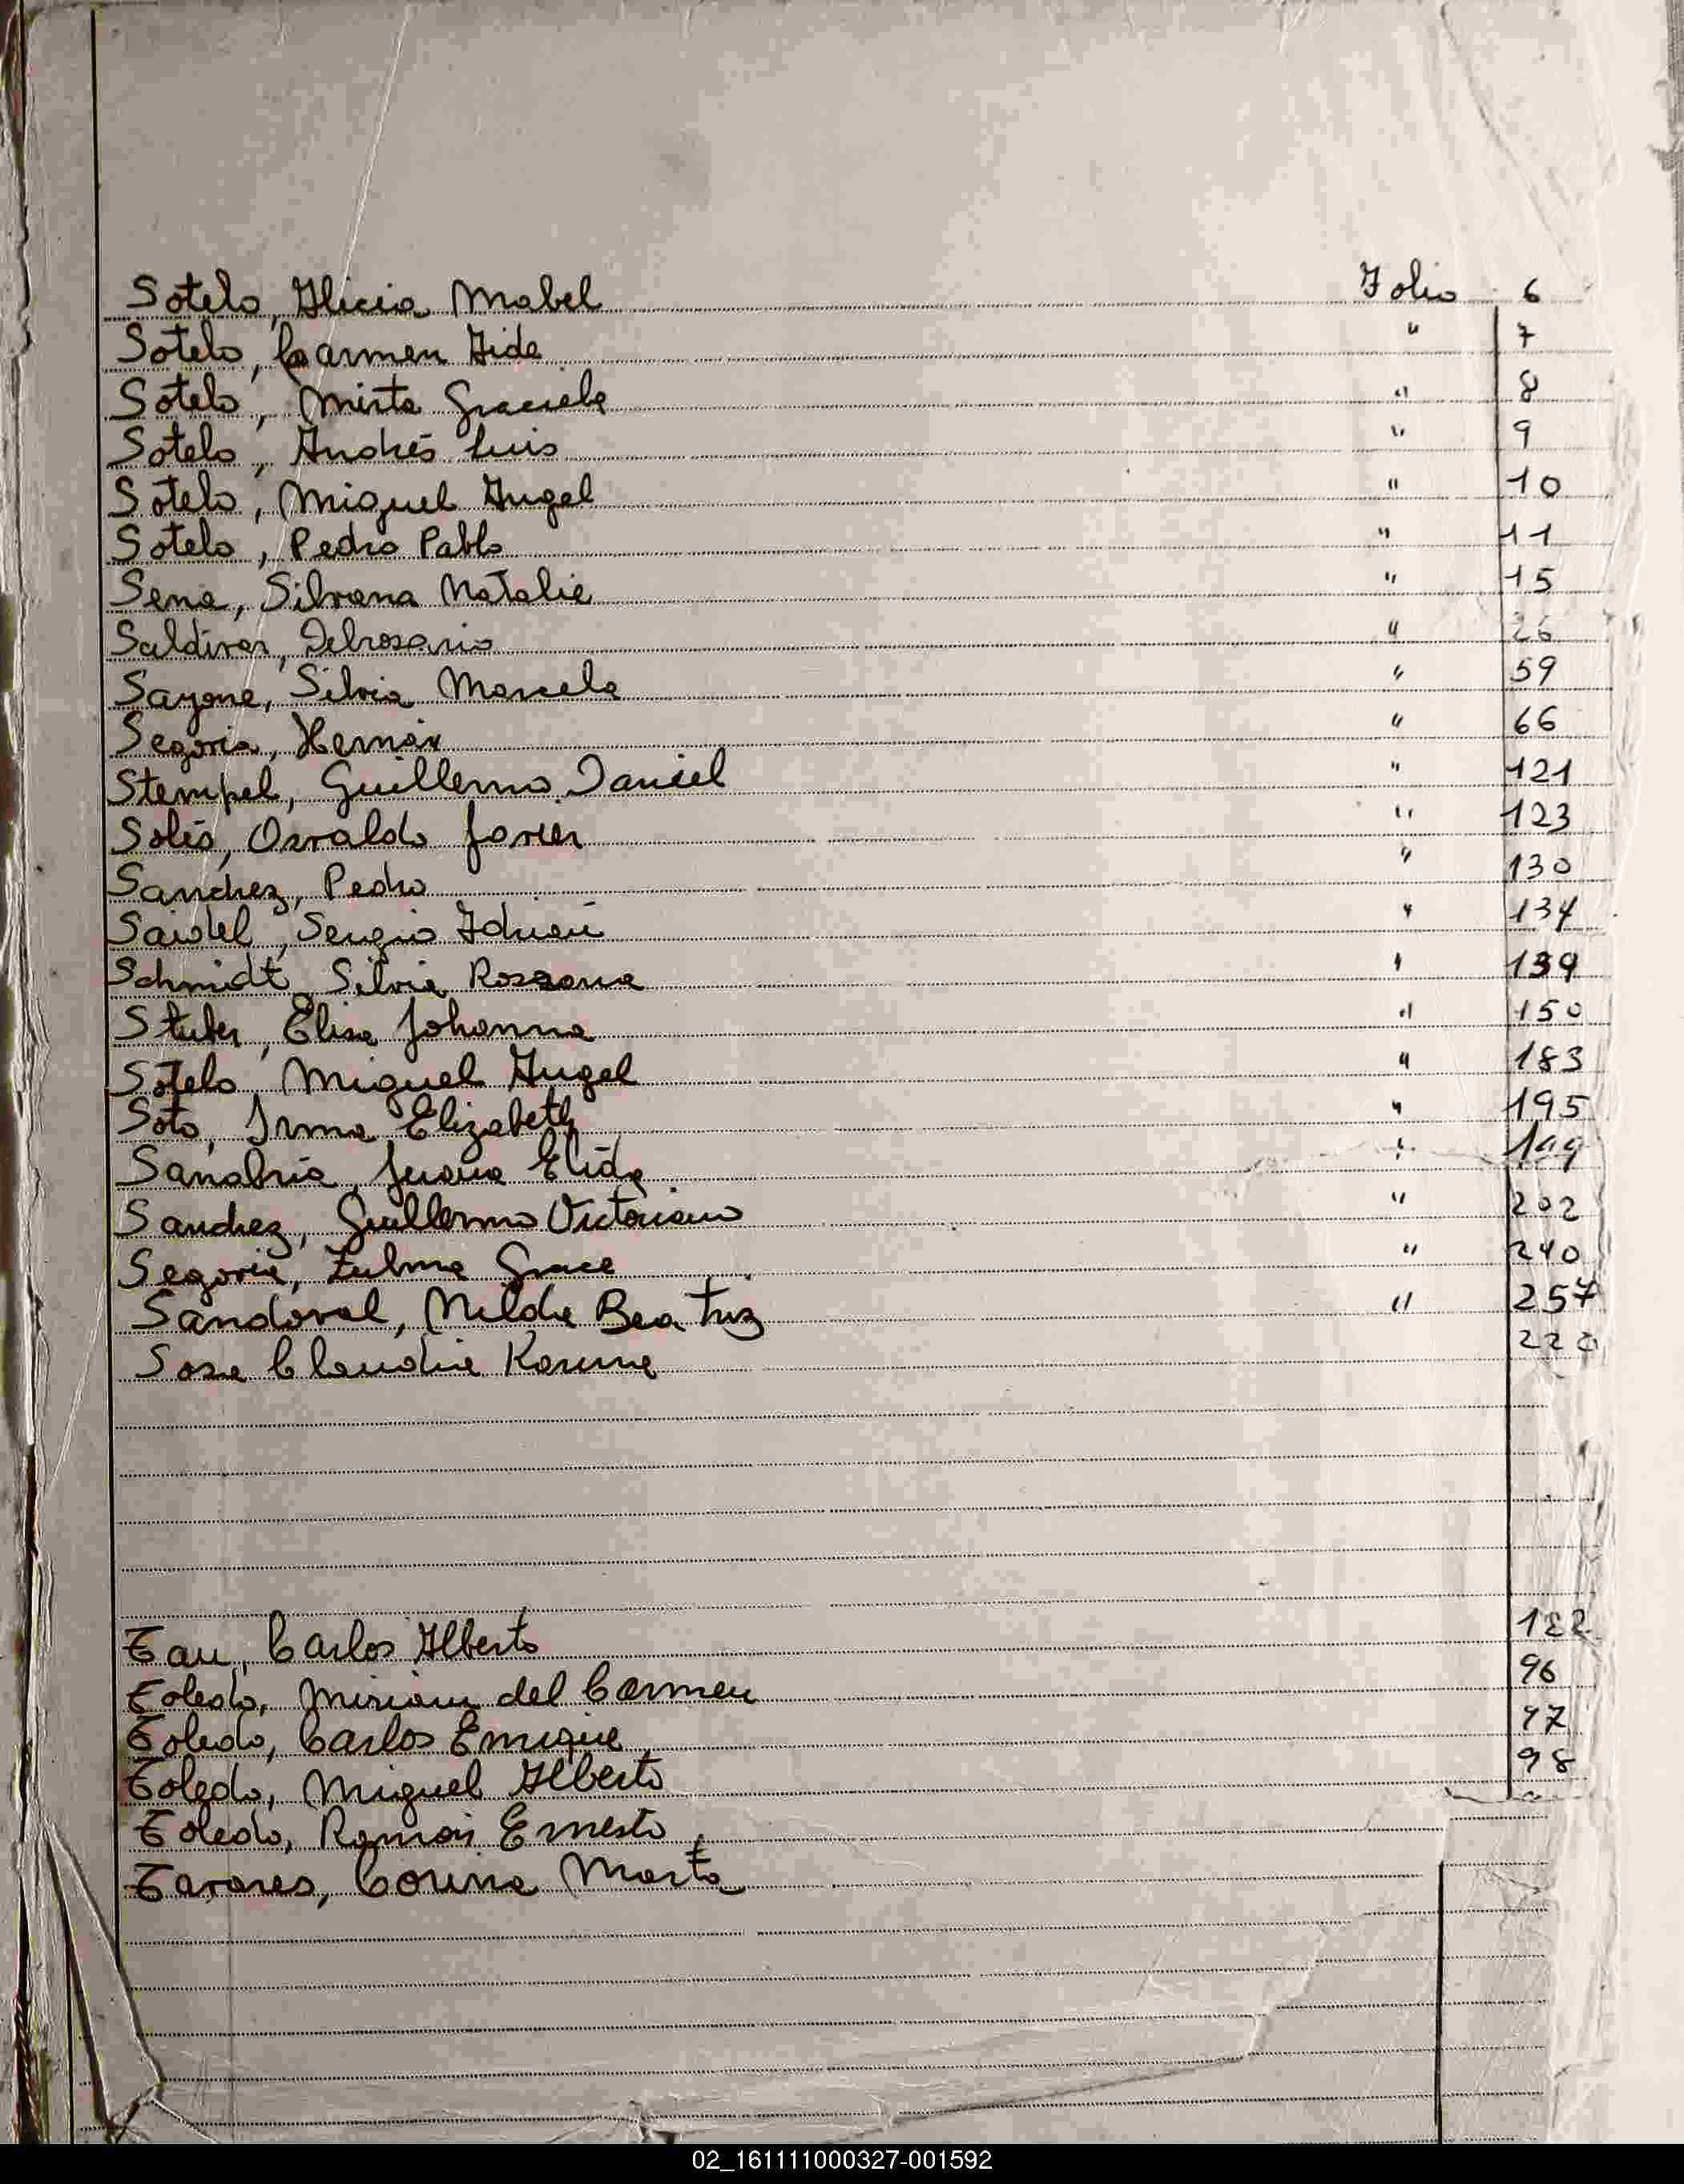 Sotelo, Alicia Mabel Folio 6
Sotelo, Carmen Aida " 7
Sotelo, Mirta Graciela " 8
Sotelo, Andrés Luis " 9
Sotelo, Miguel Angel " 10
Sotelo, Pedro Pablo " 11
Sena, Silvana Natalia " 15
Saldivar, Delrosario " 26
Sayone, Silvia Marcela " 59
Segovia, Hernán " 66
Stempel, Guillermo Daniel " 121
Solis, Osvaldo Javier " 123
Sanchez, Pedro " 130
Saidel, Sergio Adrián " 134
Schmidt, Silvia Rossana " 139
Stuber, Elisa Johanna " 150
Sotelo Miguel Angel " 183
Soto, Irma Elizabeth " 195
Sanabria, Juana Elida " 199
Sanchez, Guillermo Victoriano " 202
Segovia, Zulma Grace " 240
Sandoval, Nilda Beatriz " 257
Sosa Claudia Karina 220
Tau, Carlos Alberto 122
Toledo, Miriam del Carmen 96
Toledo, Carlos Enrique 97
Toledo, Miguel Alberto 98
Toledo, Ramón Ernesto
Tavares, Corina Marta
02_161111000327-001592